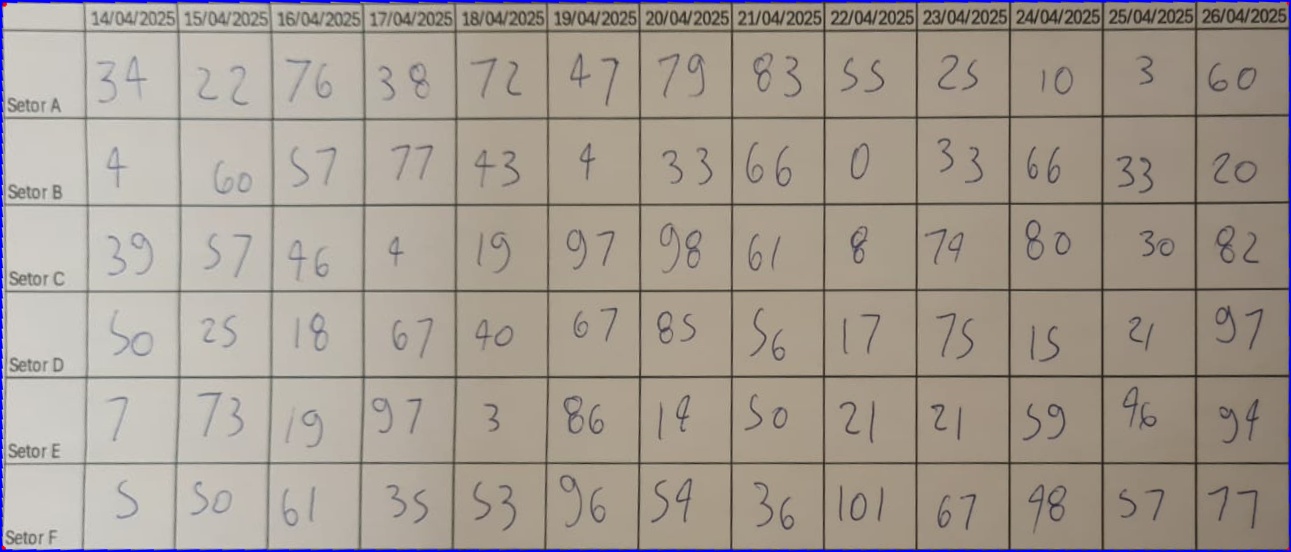 14/04/2025 15/04/2025 16/04/2025 17/04/2025 18/04/2025 19/04/2025 20/04/2025 21/04/2025 22/04/2025 23/04/2025 24/04/2025 25/04/2025 26/04/2025
Setor A 34 22 76 38 72 47 79 83 55 25 10 3 60
Setor B 4 60 57 77 43 4 33 66 0 33 66 33 20
Setor C 39 57 46 4 19 97 98 61 8 74 80 30 82
Setor D 50 25 18 67 40 67 85 56 17 75 15 21 97
Setor E 7 73 19 97 3 86 14 50 21 21 59 46 94
Setor F 5 50 61 35 53 96 54 36 101 67 48 57 77